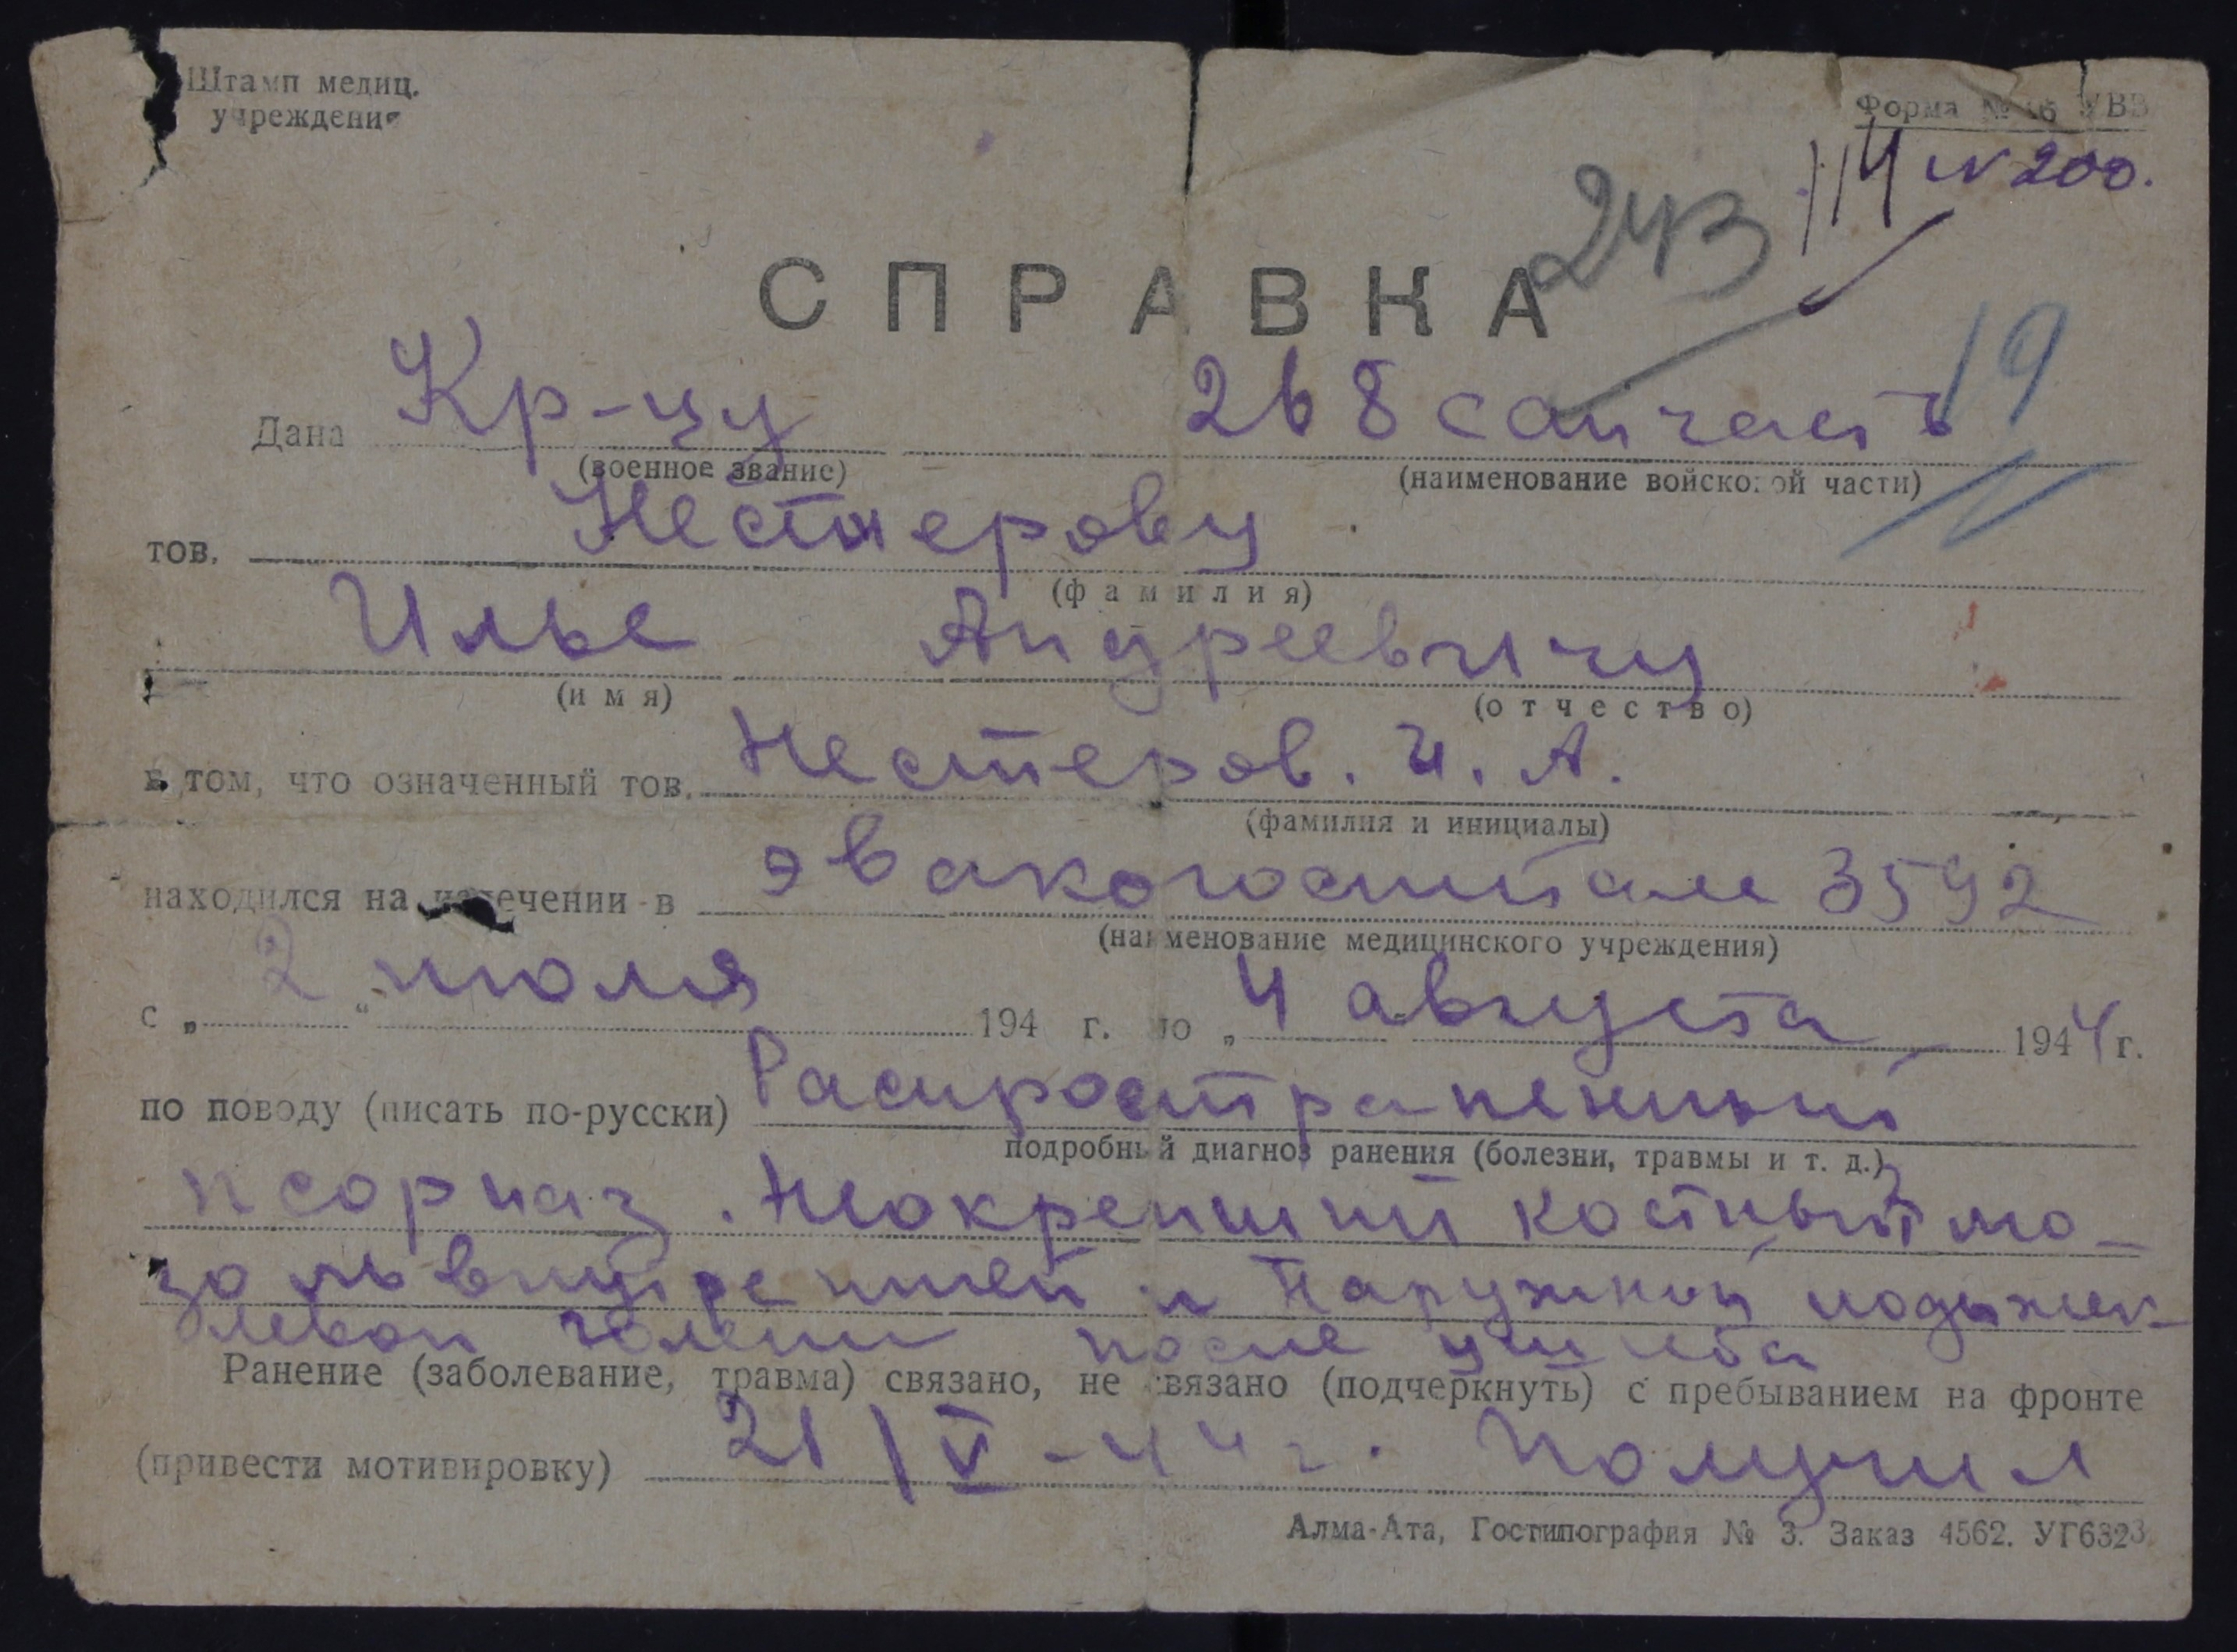 Штамп медиц.
учреждения
Форма № 16 УВВ
№ 200.
243
СПРАВКА
19
Дана Кр-цу 268 сан часть
(военное звание) (наименование войсковой части)
тов. Нестерову
(фамилия)
Илье Андреевичу
(имя) (отчество)
в том, что означенный тов. Нестеров. И. А.
(фамилия и инициалы)
находился на излечении в эвакогоспитале 3592
(наименование медицинского учреждения)
с „2“ июля 194 г. по „4 августа 1944 г.
по поводу (писать по-русски) Распространенный
подробный диагноз ранения (болезни, травмы и т. д.)
псориаз. Неокрепший костный мо-
золь внутренней и наружной лодыжек
левой голени после ушиба
Ранение (заболевание, травма) связано, не связано (подчеркнуть) с пребыванием на фронте
(привести мотивировку) 21/V-44 г. Получил
Алма-Ата, Гостипография № 3. Заказ 4562. УГ6323